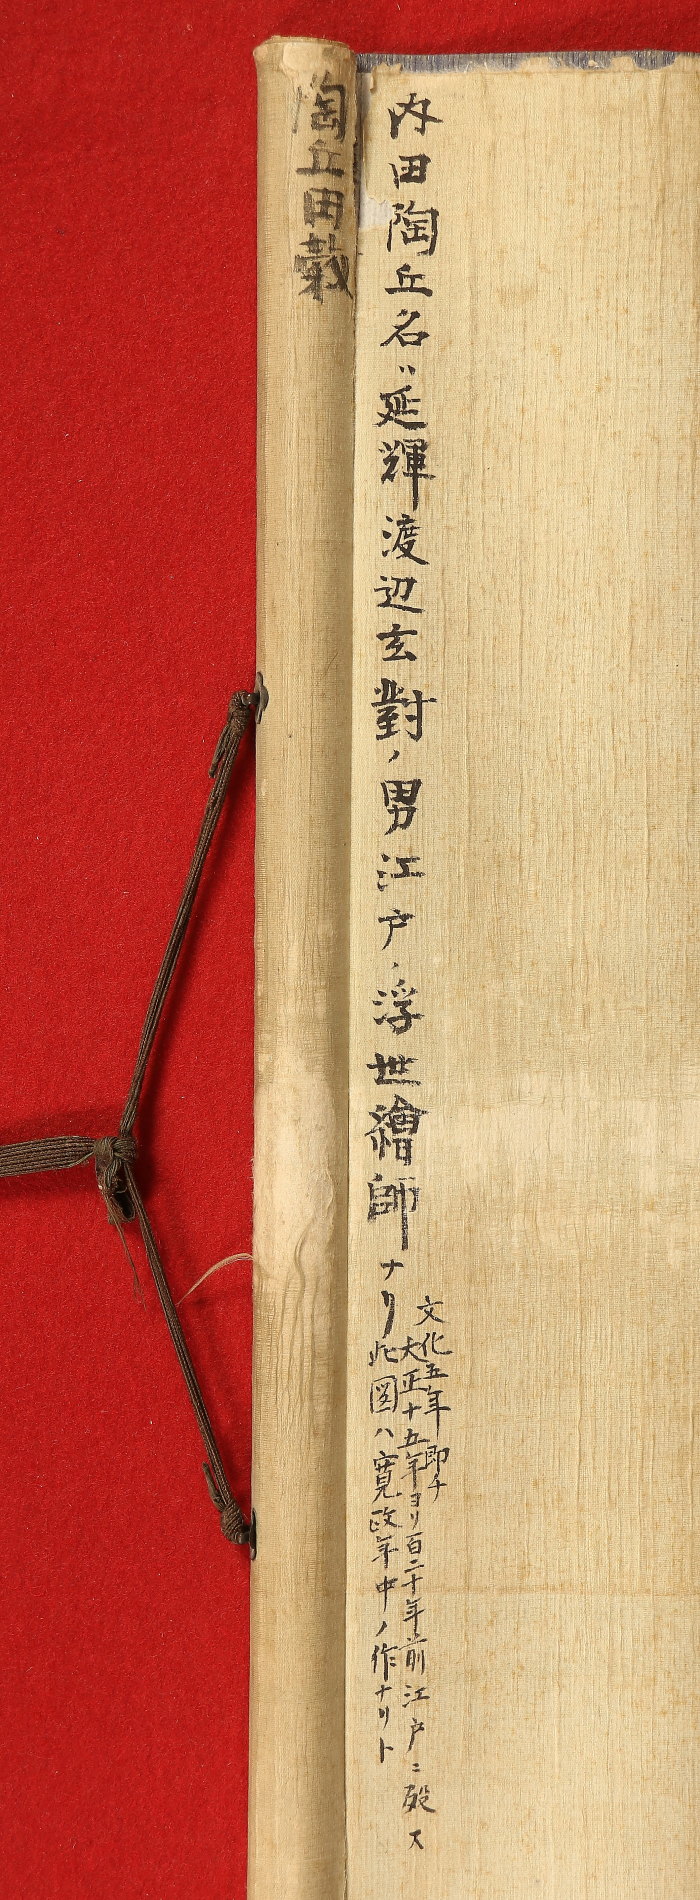 内田陶丘名ハ延輝渡辺玄對ノ男江戸ノ浮世繪師ナリ
文化五年即チ
大正十五年ヨリ百二十年前江戸ニ歿ス
此圖ハ寛政年中ノ作ナリト
陶丘田穀